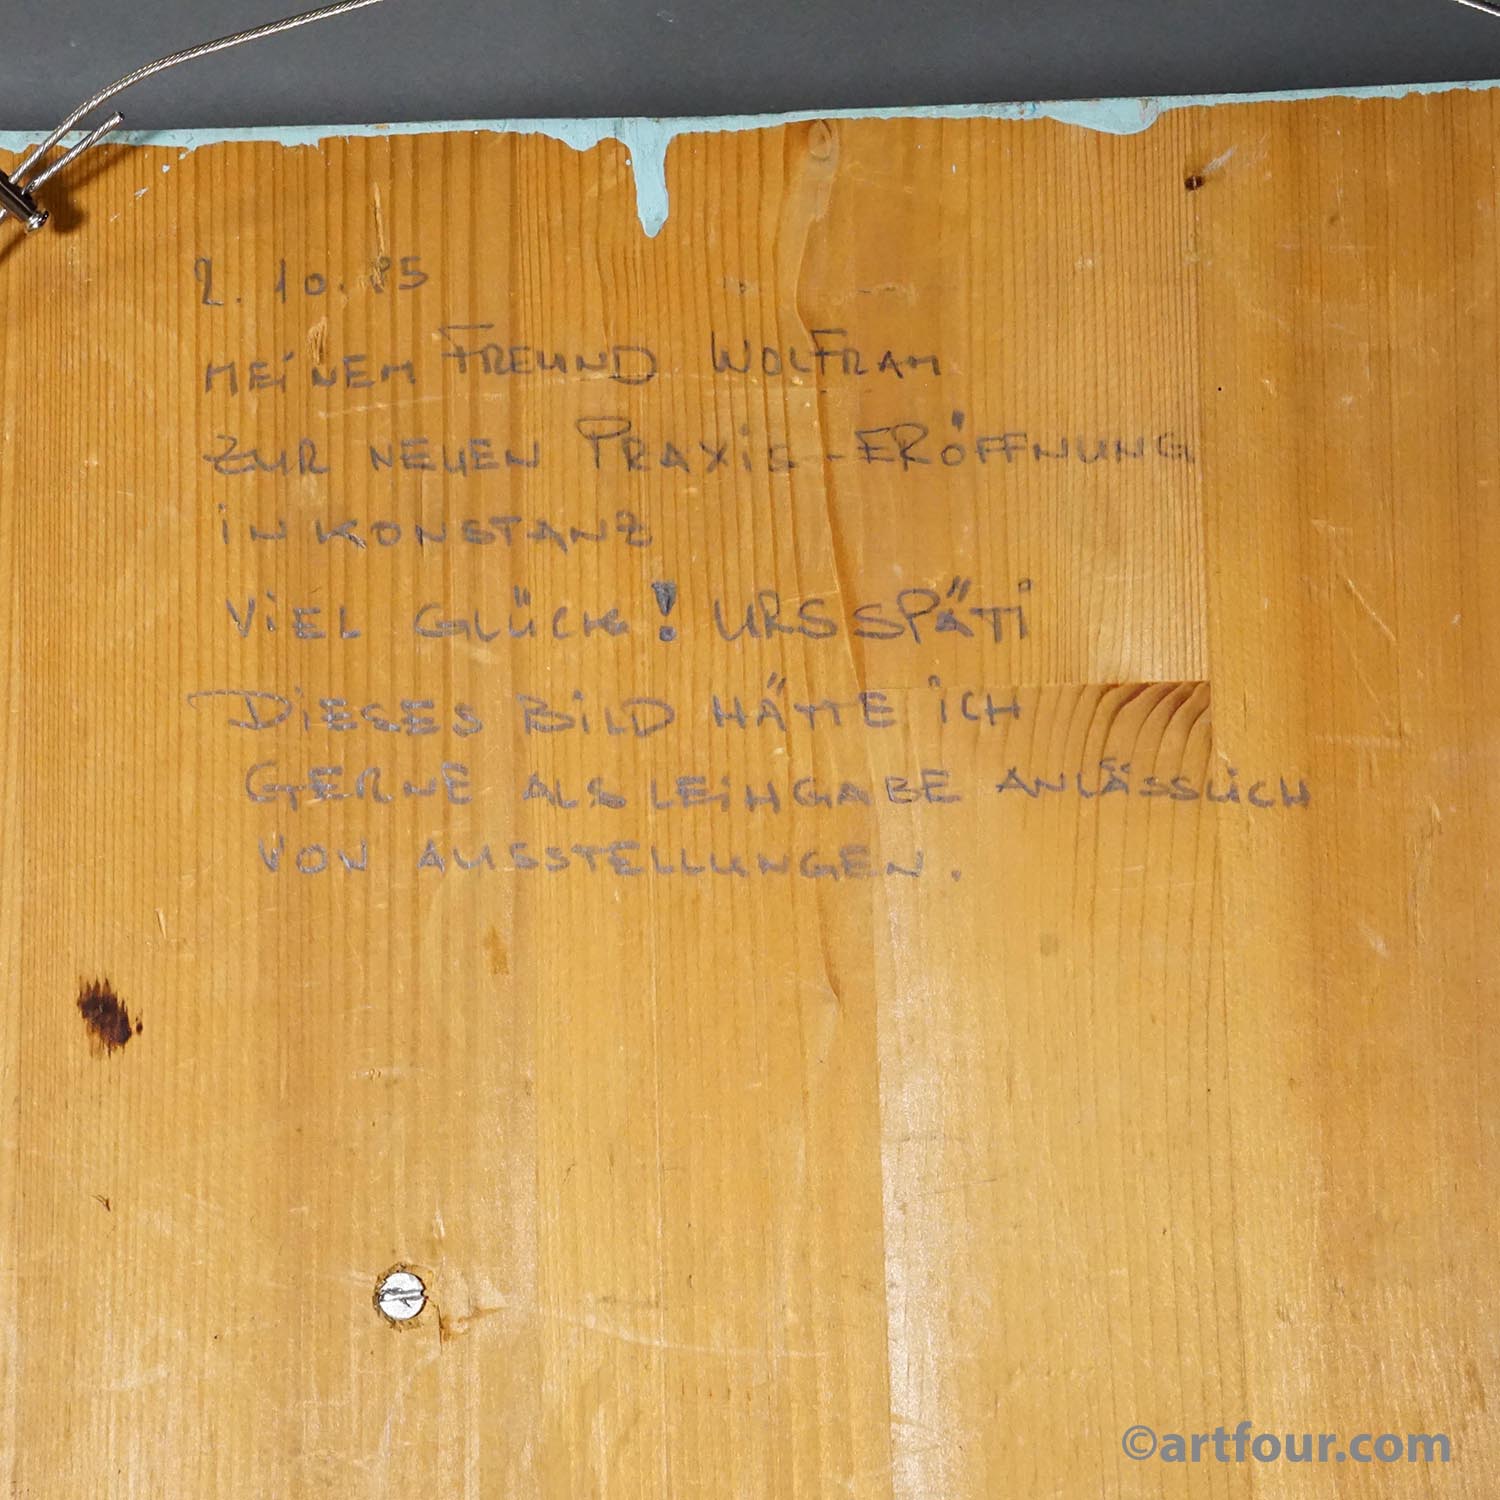 2. 10. 85
MEiNEM FREUND WOLFRAM
ZUR NEUEN PRAXiS-ERÖFFNUNG
iN KONSTANZ
ViEL GLÜCK! URS SPÄTi
DiESES BiLD HÄTTE iCH
GERNE ALS LEiHGABE ANLÄSSLiCH
VON AUSSTELLUNGEN.
©artfour.com